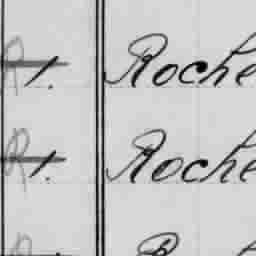 R 1. Roche
R 1. Roche
R